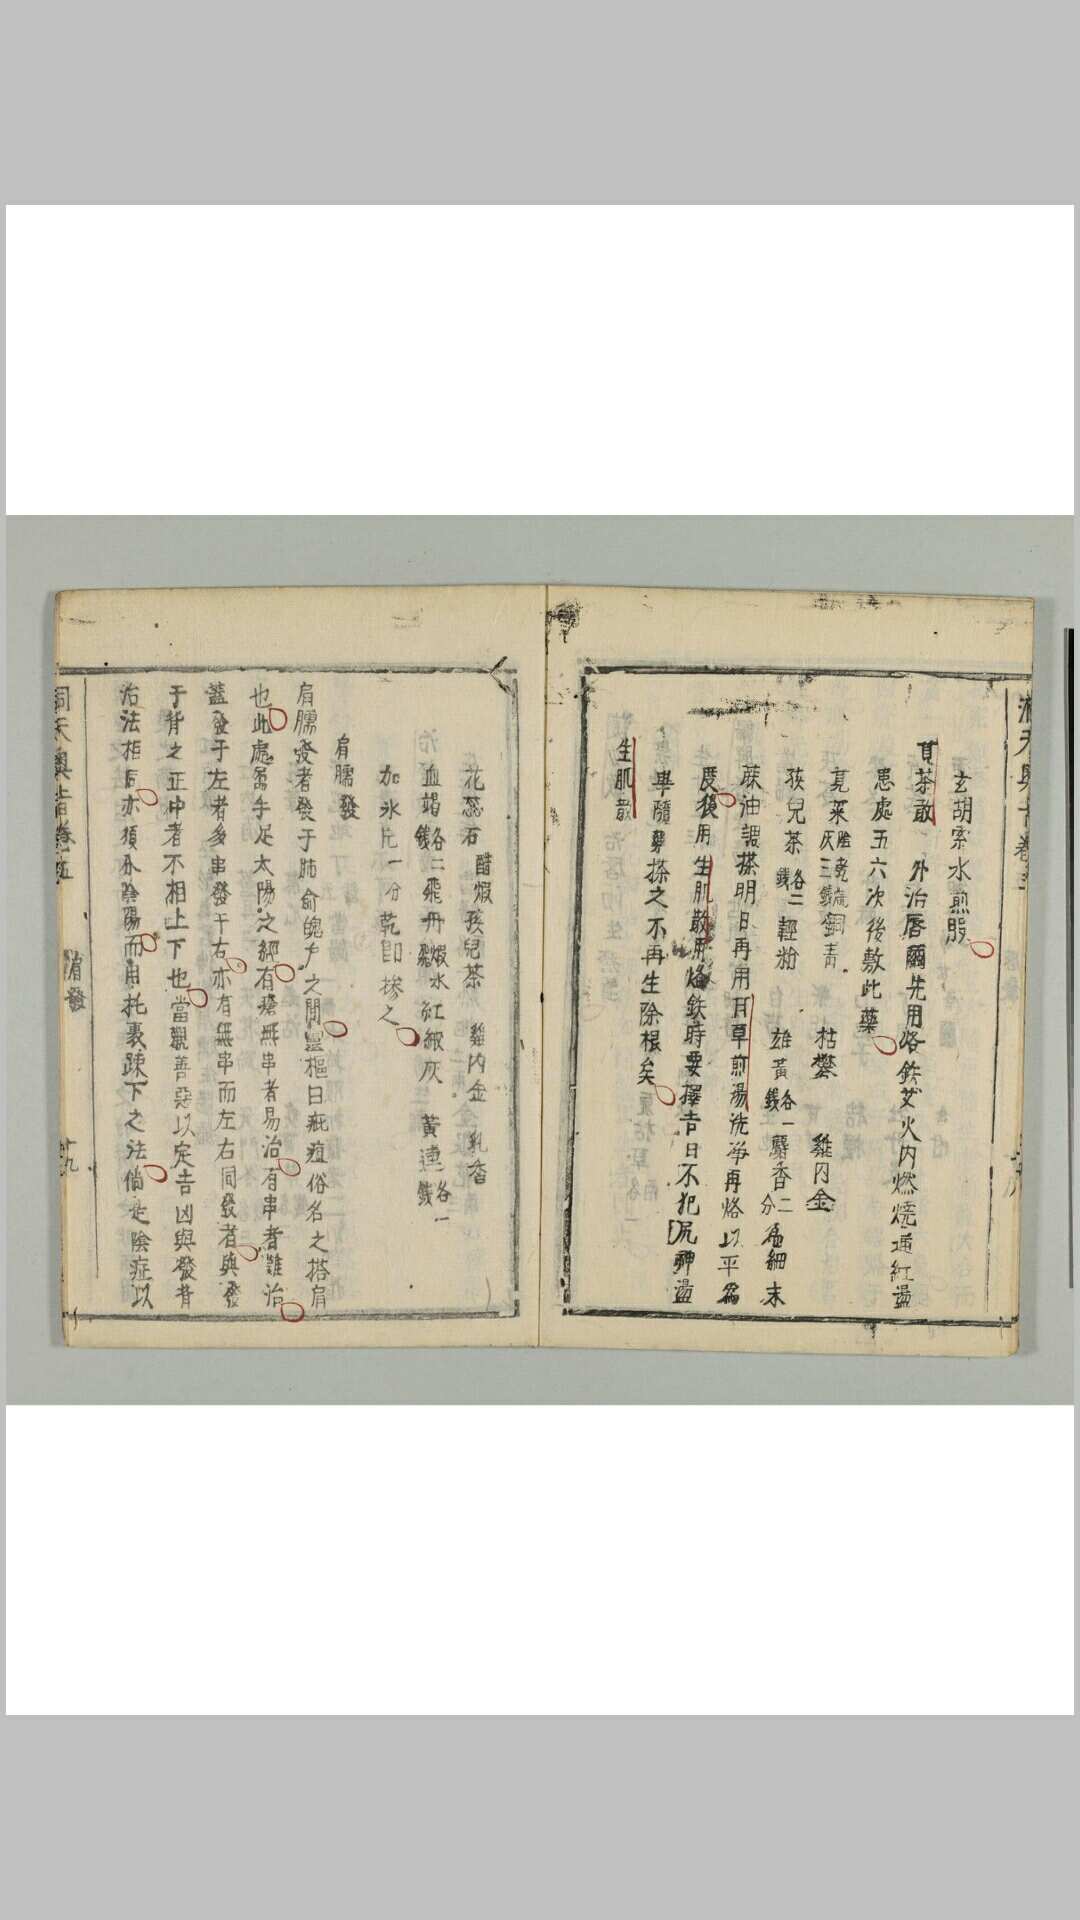 玄胡索水煎服
貢茶散　外治唇爾先用烙鉄艾火內燃燒通紅盪
患處五六次後敷此藥
莧菜陰乾燒灰三錢銅青　枯礬　雞内金
孩兒茶各二錢輕粉　雄黃各一錢麝香二分為細末
蔴油調搽明日再用甘草煎湯洗淨再烙以平爲
度後用生肌散用烙鉄時要擇吉日不犯尻神盪
畢隨搽之不再生除根矣
生肌散
花蕊石醋煅孩兒茶　雞内金　乳香
血竭各二錢飛丹煅水飛紅緞灰　黃連各一錢
加氷片一分乾即摻之
肩臑發
肩臑發者發于肺俞魄户之間靈樞曰疵疽俗名之搭肩
也此處属手足太陽之經有瘡無串者易治有串者難治
蓋發于左者多串發于右亦有無串而左右同發者與發
于背之正中者不相上下也當觀善惡以定吉凶與發背
治法相同亦須分陰陽而用托裏疎下之法倘是陰症以
洞天奧旨卷五
肩發
十九